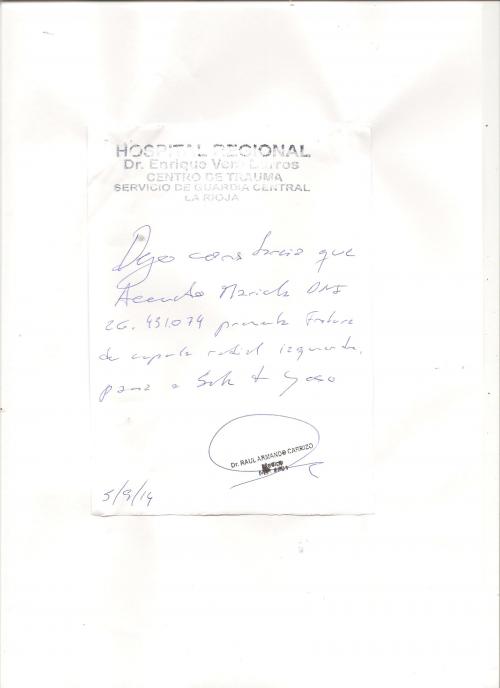 HOSPITAL REGIONAL
Dr. Enrique Vera Barros
CENTRO DE TRAUMA
SERVICIO DE GUARDIA CENTRAL
LA RIOJA
Dejo constancia que
Mariela DNI
26.431.074 presenta Fractura
de cupula radial izquierda,
pasa a Sala de Yeso
Dr. RAUL ARMANDO CARRIZO
Medico
5/9/14